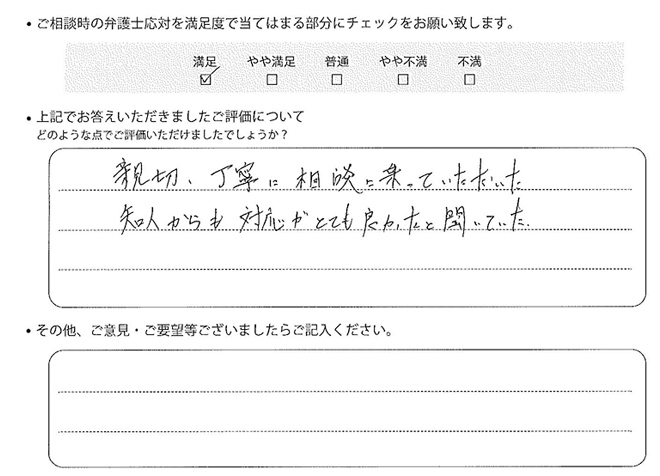 • ご相談時の弁護士応対を満足度で当てはまる部分にチェックをお願い致します。
満足 やや満足 普通 やや不満 不満
• 上記でお答えいただきましたご評価について
どのような点でご評価いただけましたでしょうか？
親切、丁寧に相談に乗っていただいた
知人からも対応がとても良かったと聞いていた.
• その他、ご意見・ご要望等ございましたらご記入ください。